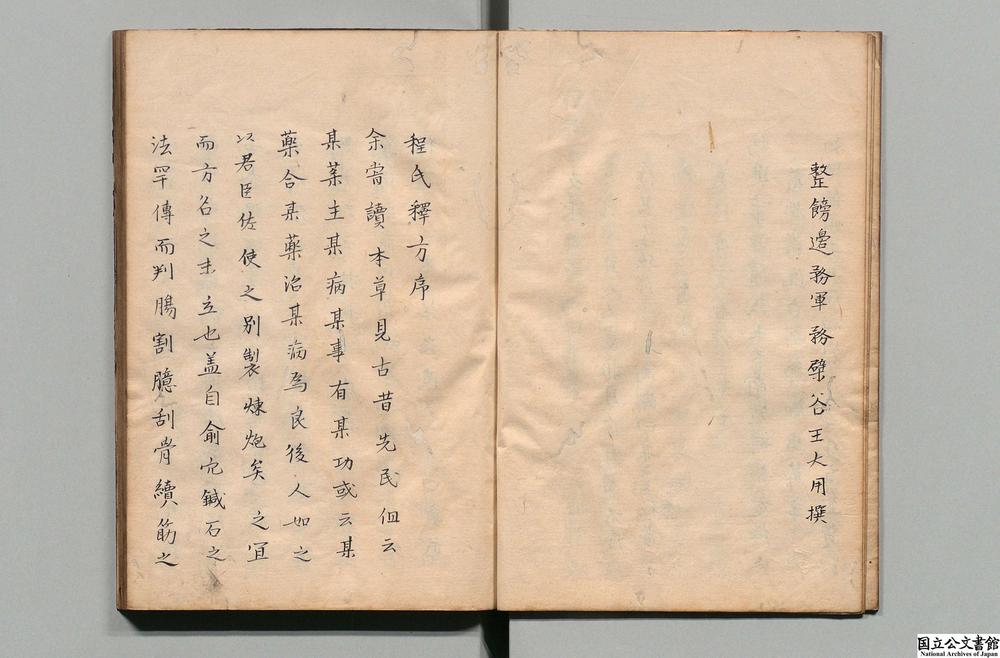 整飭邊務軍務檗谷王大用撰
程氏釋方序
余嘗讀本草見古昔先民但云
某藥主某病某事有某功或云某
藥合某藥治某病為良後人如之
以君臣佐使之別製煉炮矣之宜
而方名之未立也盖自俞宂鍼石之
法罕傳而判腸割臆刮骨續筋之
国立公文書館
National Archives of Japan